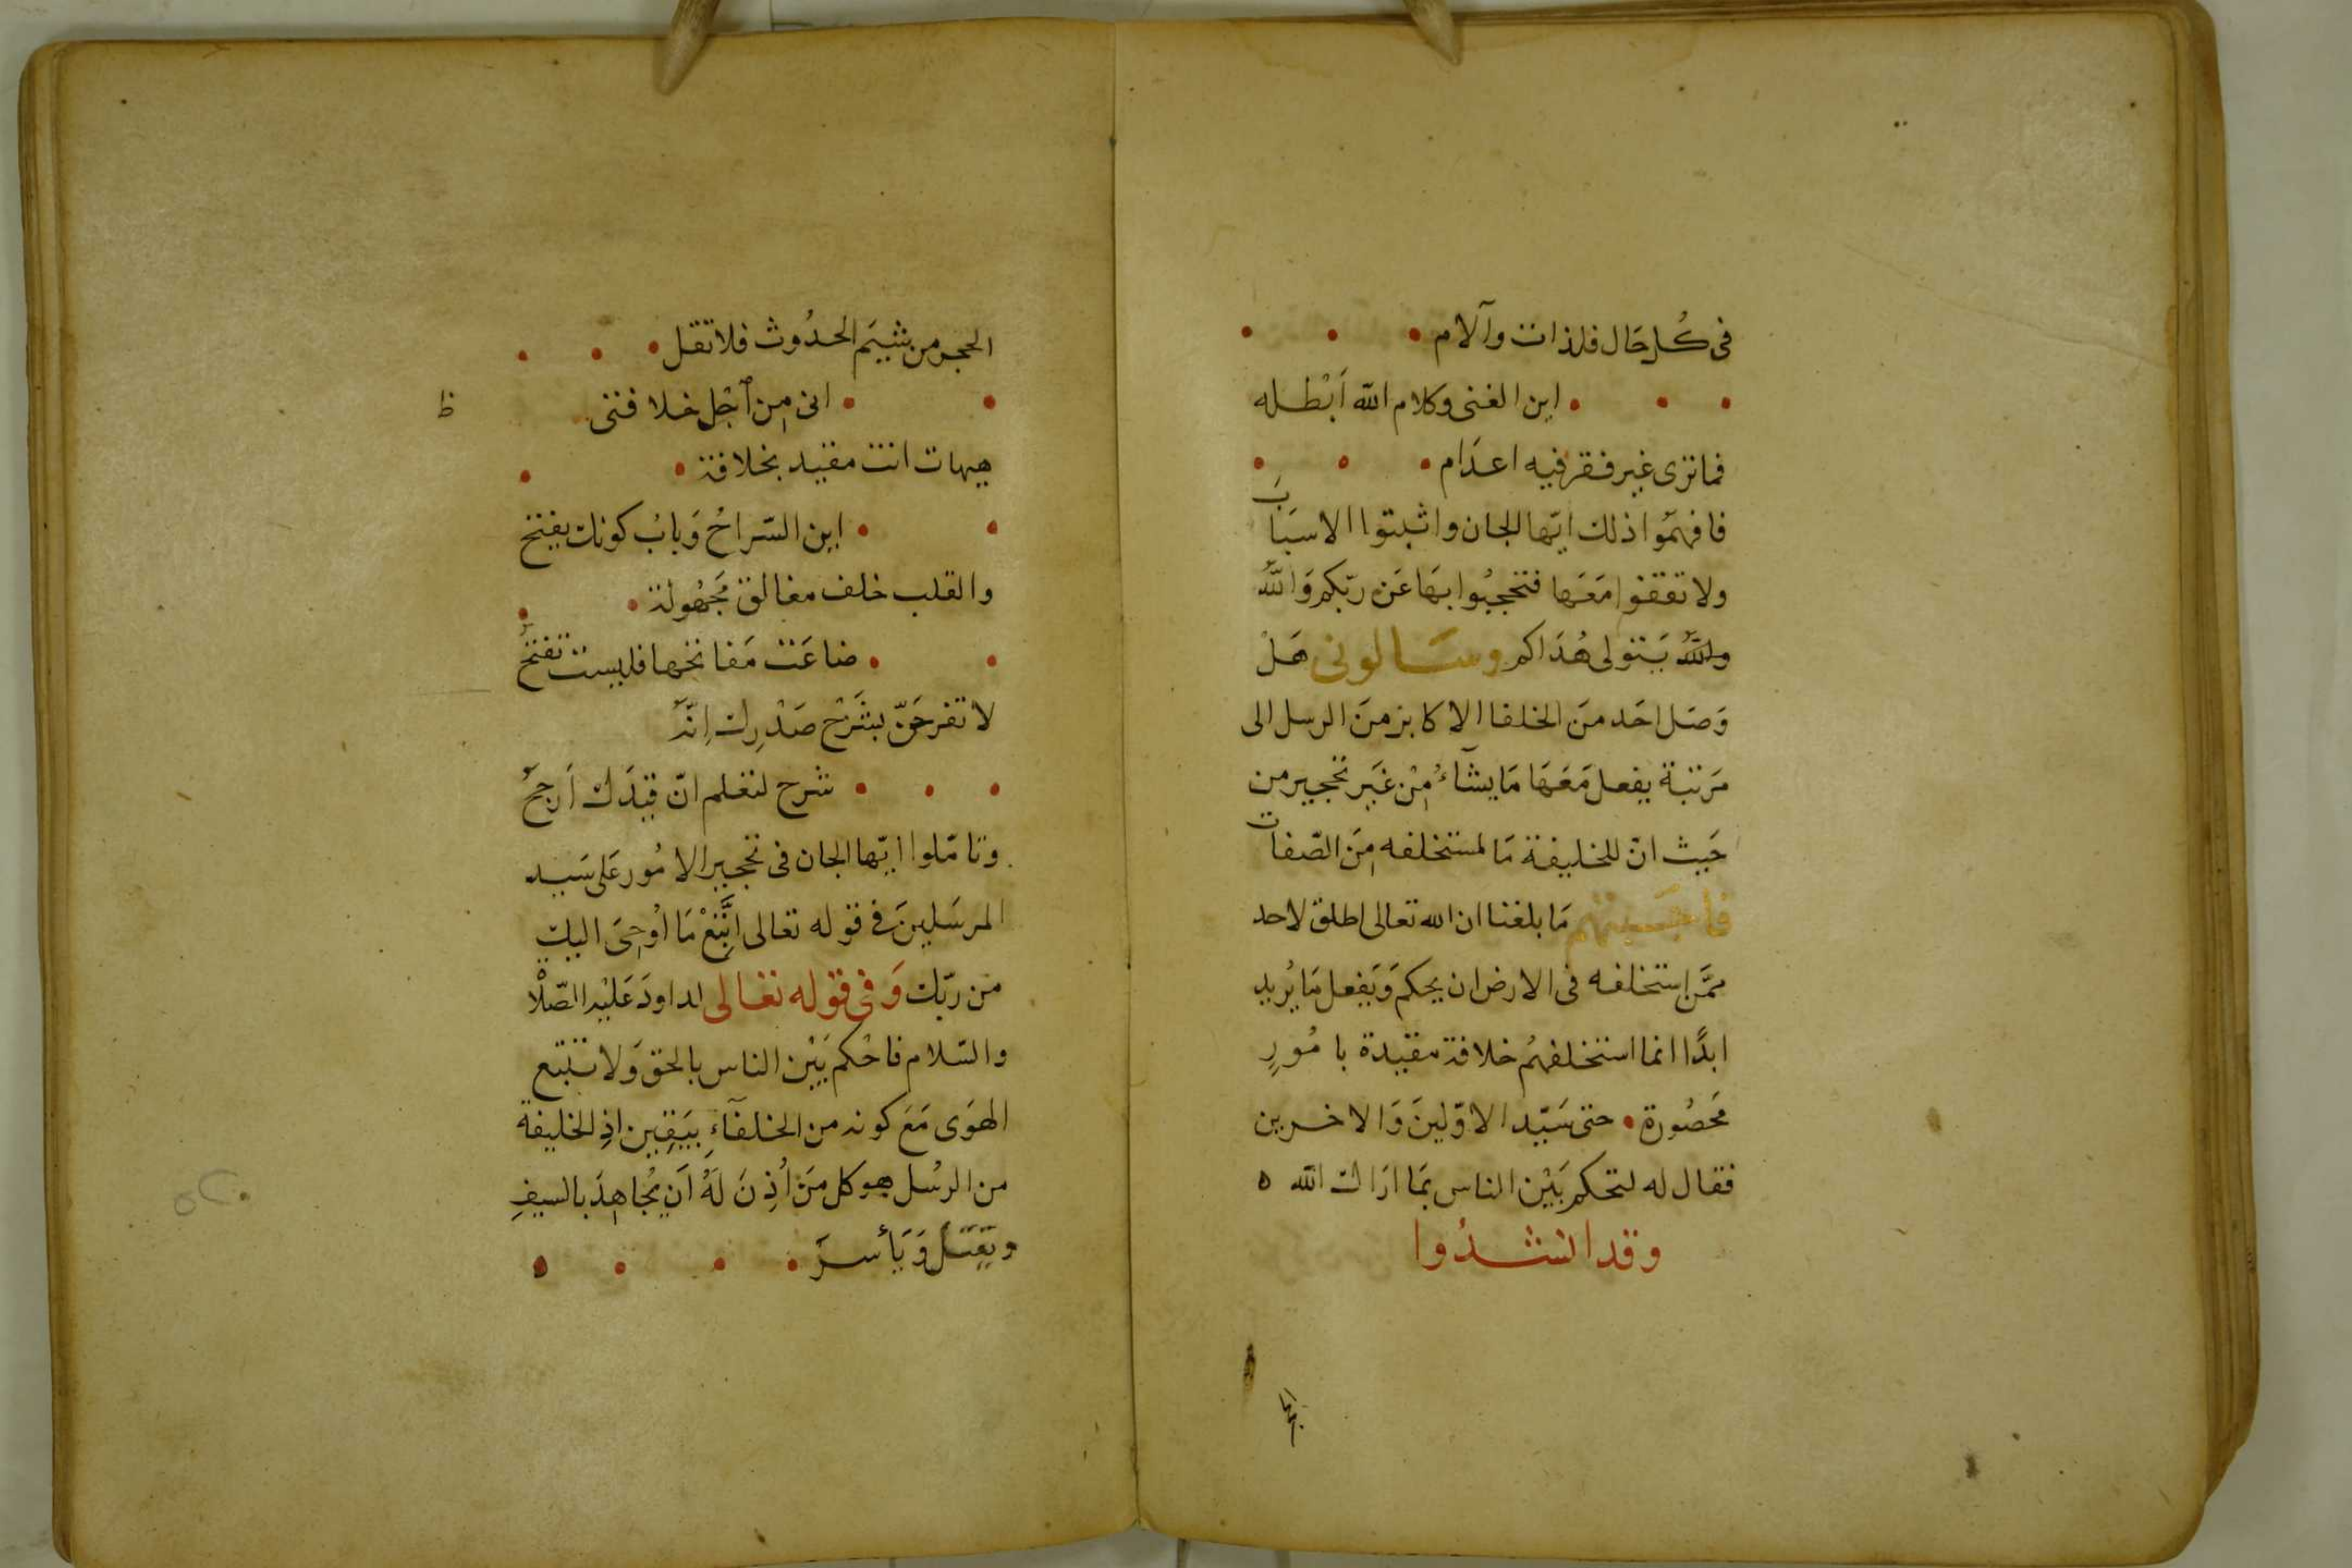 فى كُل حَال فلذات وآلام
اين الغنى وكلام الله اَبْطله
فما ترى غير فقر فيه اعدَام
فافهمُوا ذلك ايّها الجان واثبتوا الاسبَابَ
ولا تقفوا مَعَهَا فتحجبُوا بهَا عَن ربّكم وَاللهُ
واللهُ يَتولى هُدَاكم وسَالونى هَلْ
وَصَل احَد منَ الخلفا الاكابر منَ الرسل الى
مَرتبة يفعل مَعَهَا مَا يشآءُ مِنْ غَير تحجير من
حَيث انّ للخليفة مَا لمستخلفه مِنَ الصّفات
فاجَبتهم مَا بلغنا ان الله تعالى اطلق لاحد
ممَّن استخلفه فى الارض ان يحكم وَيَفعل مَا يُريد
ابدًا انما استخلفهُم خلافة مقيدة بامُورٍ
مَحصُورة حتى سَيّد الاوّلينَ وَالاخرين
فقال له لتحكم بَيْن الناس بمَا ارَاك الله ه
وقد انشدُوا
الحجر
الحجر من شيَم الحدُوث فلا تقل
انى مِن اَجْل خلافتى
ظ
هيهات انت مقيد بخلافة
اين السّراحُ وَبابُ كونك يفتح
والقلب خلف مغالق مَجهُولة
ضاعَت مَفاتحها فليست تفتحُ
لا تفرحَنّ بشَرْح صَدْرِك اِنّهُ
شرح لتعلم انّ قيدَك اَرجحُ
وتامّلوا ايّها الجان فى تحجير الامُور عَلى سَيد
المرسَلينَ فى قوله تعالى اتَّبِعْ مَا اُوحِىَ اليك
من ربّك وَفى قوله تعالى لداودَ عَليْه الصّلاة
والسّلام فاحْكم بَيْن الناس بالحق وَلا تتبع
الهوَى مَعَ كونه من الخلفآءِ بيَقِين اذِ الخليفة
من الرسُل هو كل مَن اُذِنَ لهُ اَن يُجاهِدَ بالسيفِ
ويَقتلَ وَيَأسرَ